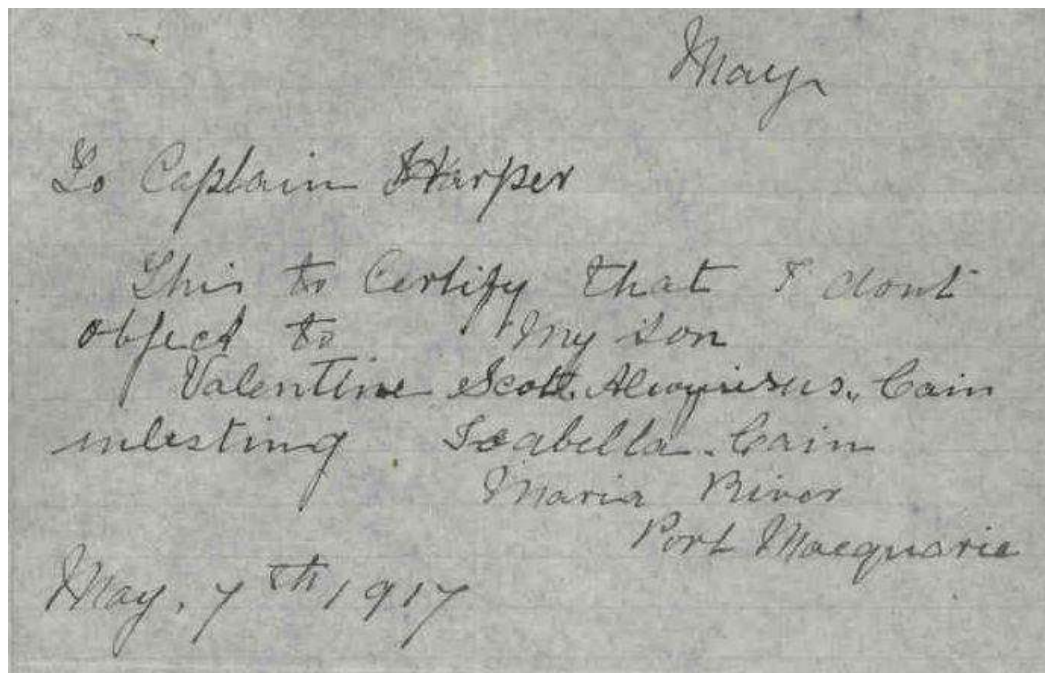 May
To Captain Harper
This to Certify that I dont
object to My son
Valentine Scott. Aloyisesus. Cain
inlesting Isabella. Cain
Maria River
Port Macquarie
May. 7th 1917